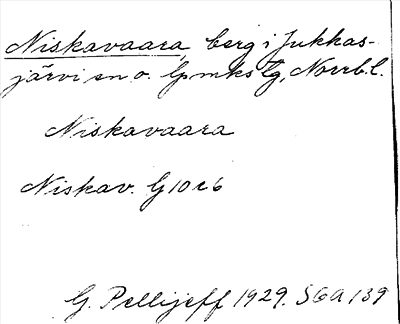 Niskavaara, berg i Jukkas-
järvi sn o. lpmkslg, Norrb.l.
Niskavaara
Niskav. G10 c6
G. Pellijeff 1929. SGA 139